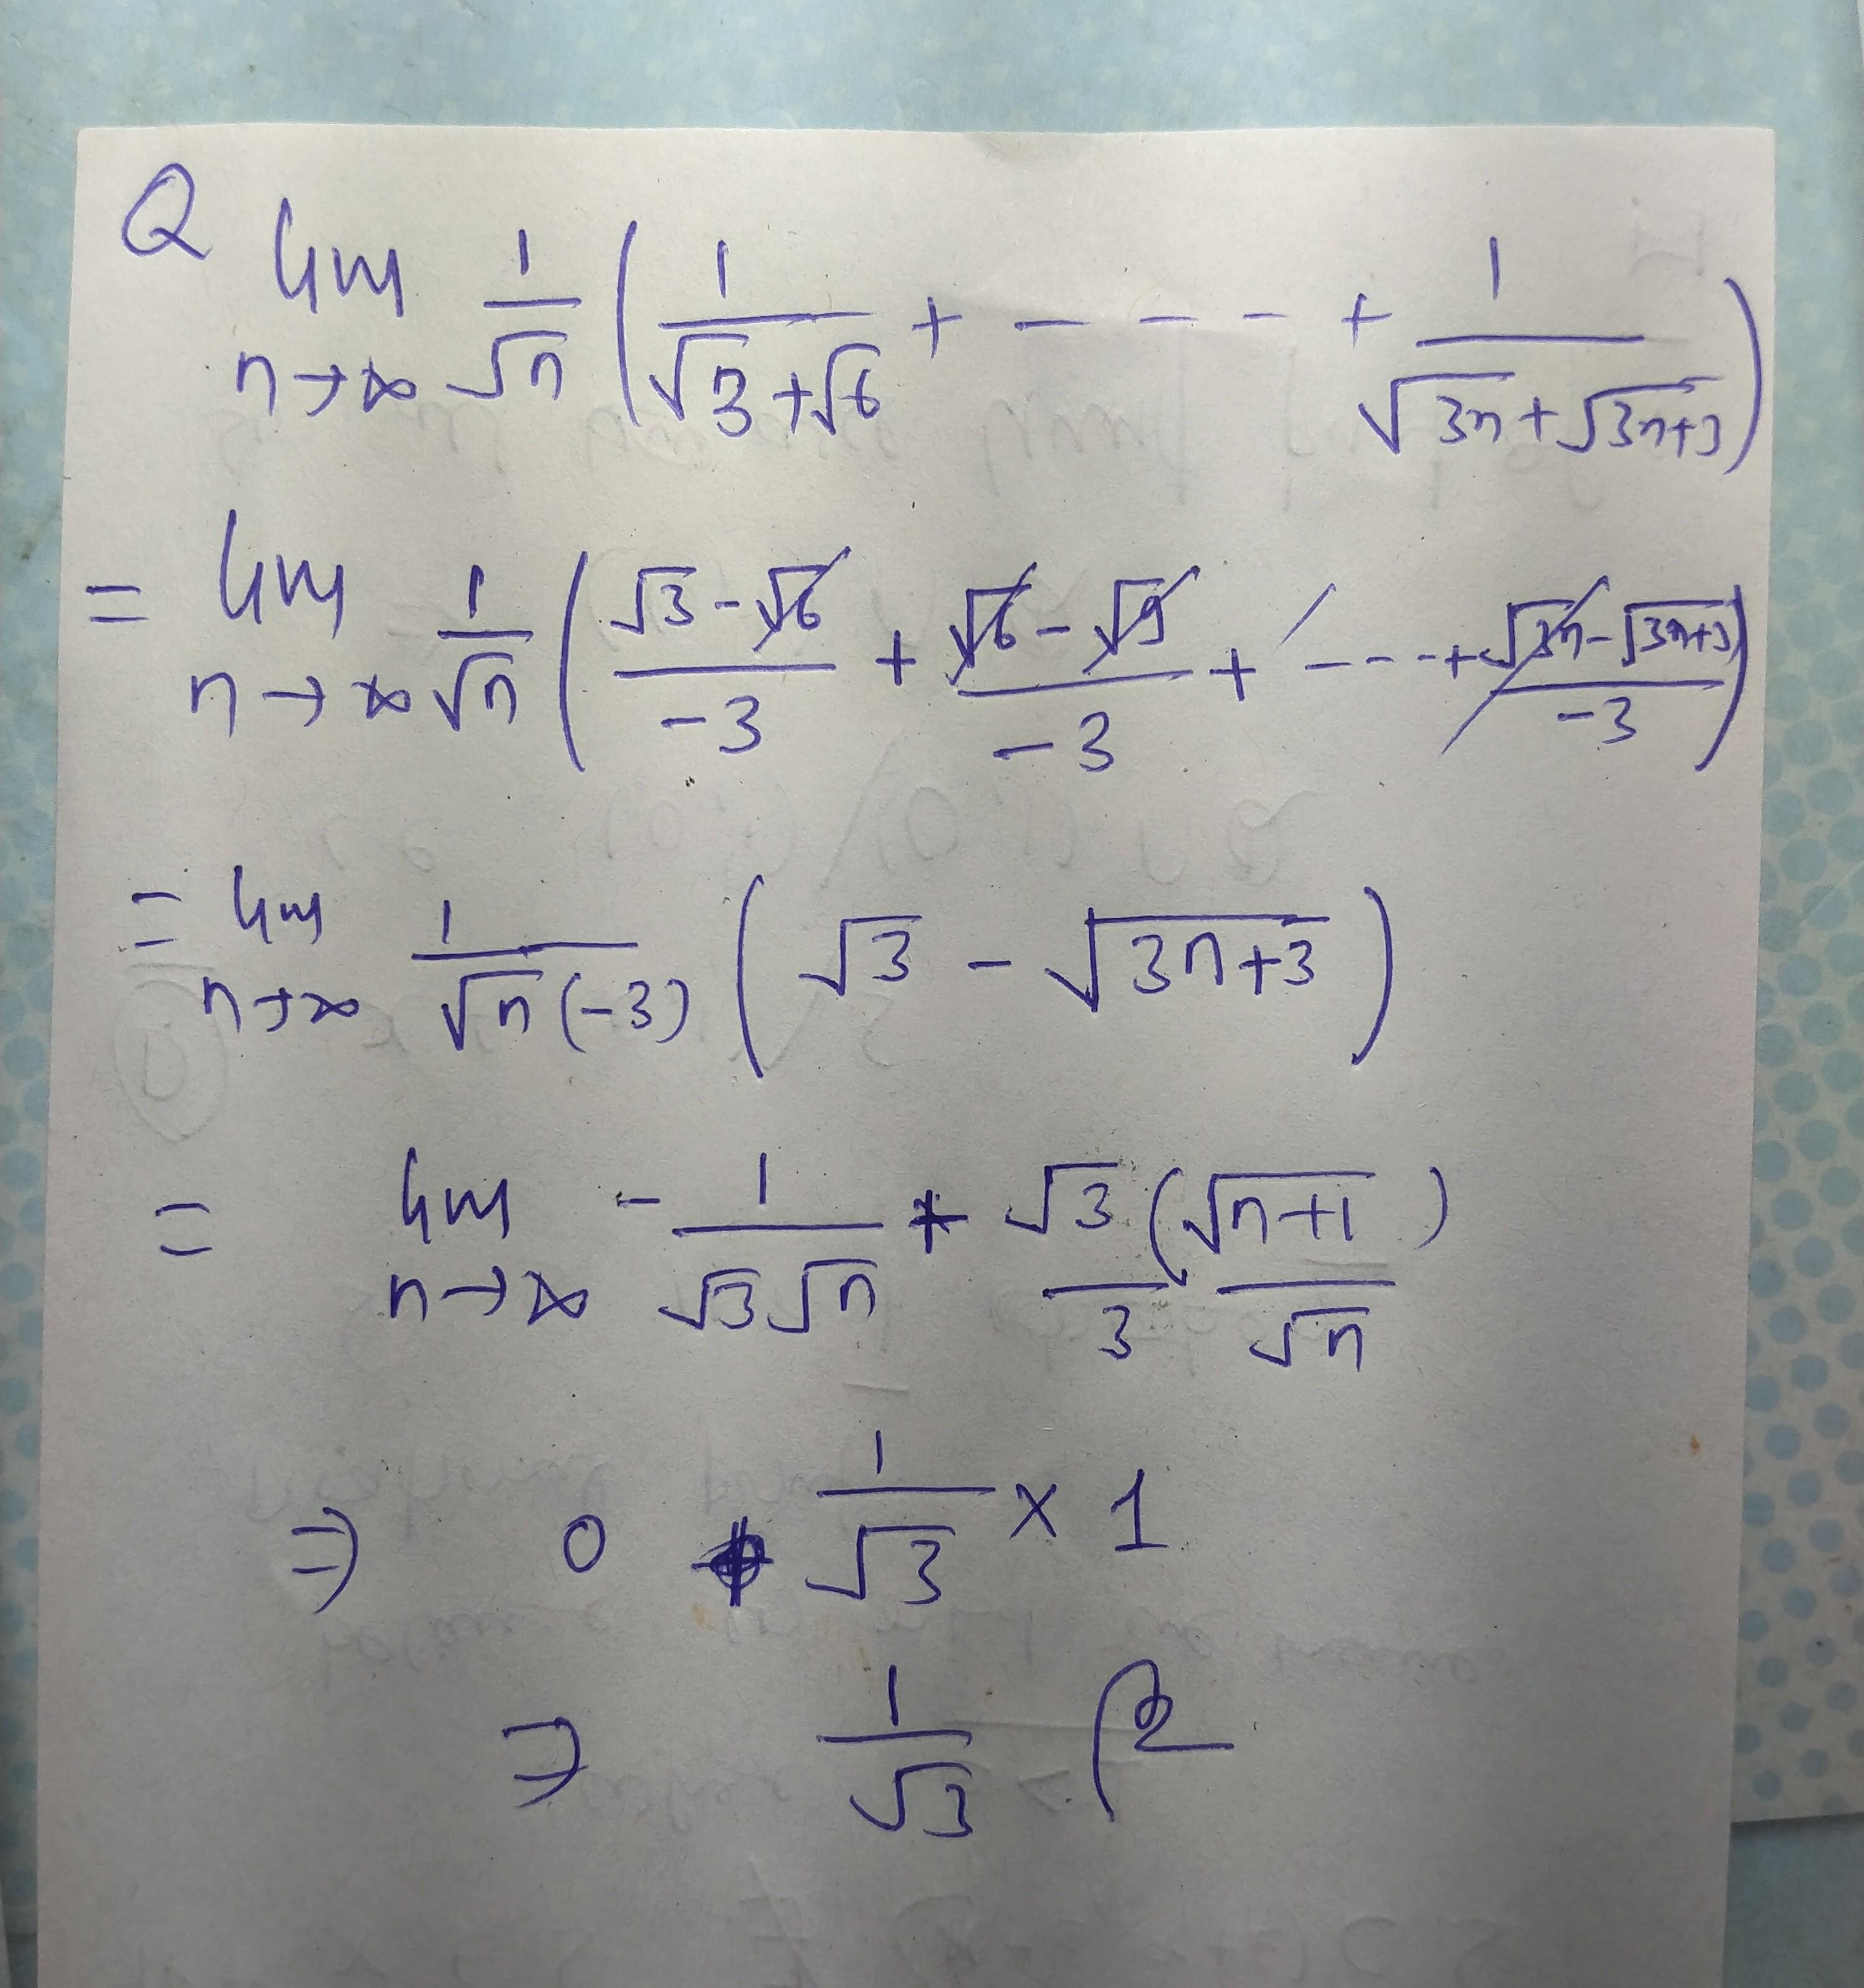 Q lim n→∞ 1/√n ( 1/(√3+√6) + - - - - + 1/(√3n+√3n+3) )
= lim n→∞ 1/√n ( (√3-√6)/-3 + (√6-√9)/-3 + - - - + (√3n-√3n+3)/-3 )
= lim n→∞ 1/(√n(-3)) ( √3 - √3n+3 )
= lim n→∞ - 1/(√3√n) + √3/3 (√n+1)/√n
⇒ 0 + 1/√3 × 1
⇒ 1/√3